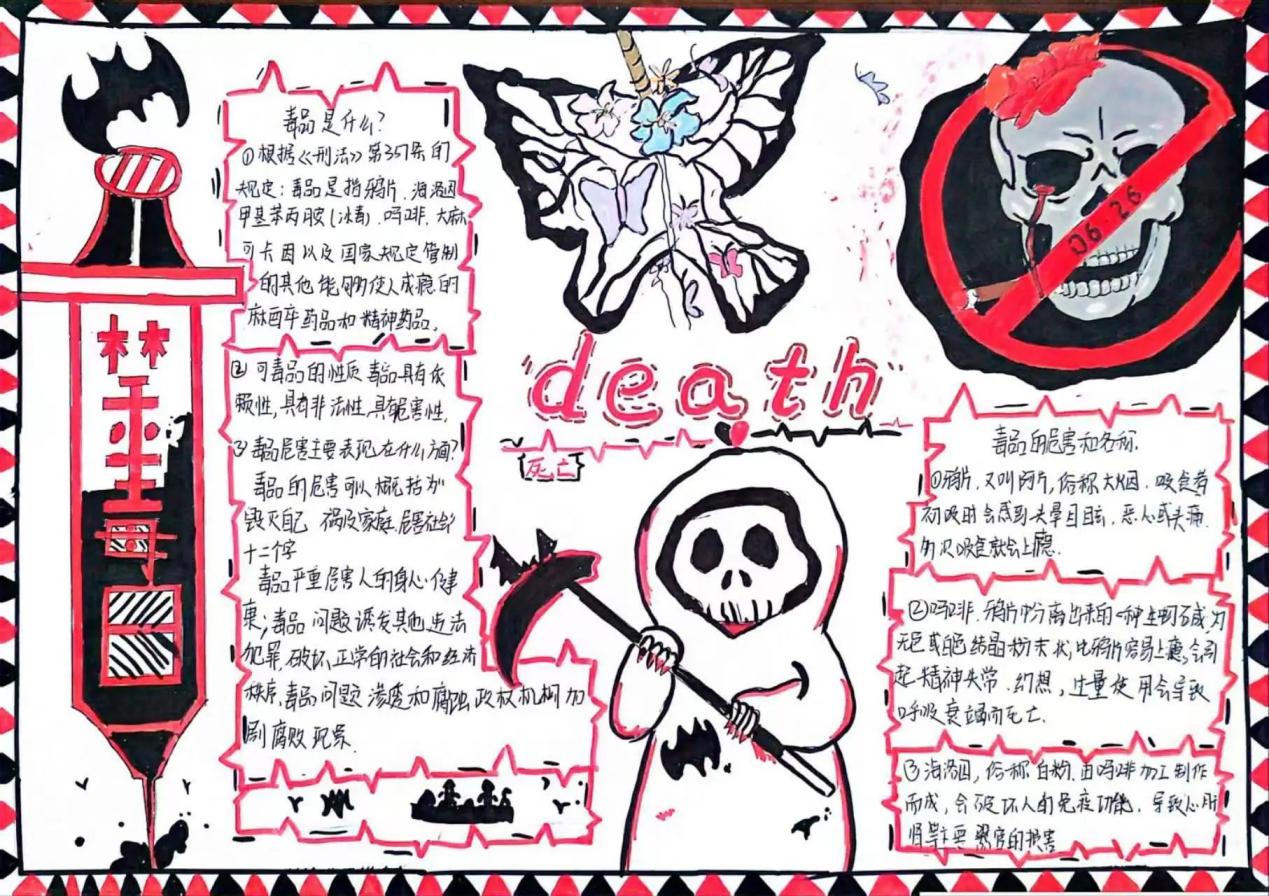 禁
毒
品
毒品是什么？
①根据《刑法》第357条的
规定：毒品是指鸦片、海洛因
甲基苯丙胺(冰毒)、吗啡、大麻
可卡因以及国家规定管制
的其他能够使人成瘾的
麻醉药品和精神药品。
② 可毒品的性质 毒品具有依
赖性，具有非法性，具有危害性。
3 毒品危害主要表现在什么方面？
毒品的危害可以概括为
毁灭自己 祸及家庭 危害社会
十二个字
毒品严重危害人的身心健
康；毒品问题诱发其他违法
犯罪，破坏正常的社会和经济
秩序，毒品问题渗透和腐蚀政权机构加
剧腐败现象。
death
死亡
06·26
毒品的危害和名称.
①鸦片，又叫阿片，俗称大烟.吸食者
初吸时会感到头晕目眩、恶心或头痛.
多次吸食就会上瘾.
②吗啡.鸦片中分离出来的一种生物碱，为
无色或白色结晶粉末状，比鸦片容易上瘾，会引
起精神失常、幻想，过量使用会导致
呼吸衰竭而死亡.
③海洛因，俗称白粉.由吗啡加工制作
而成，会破坏人的免疫功能，导致心肝
肾等主要器官的损害